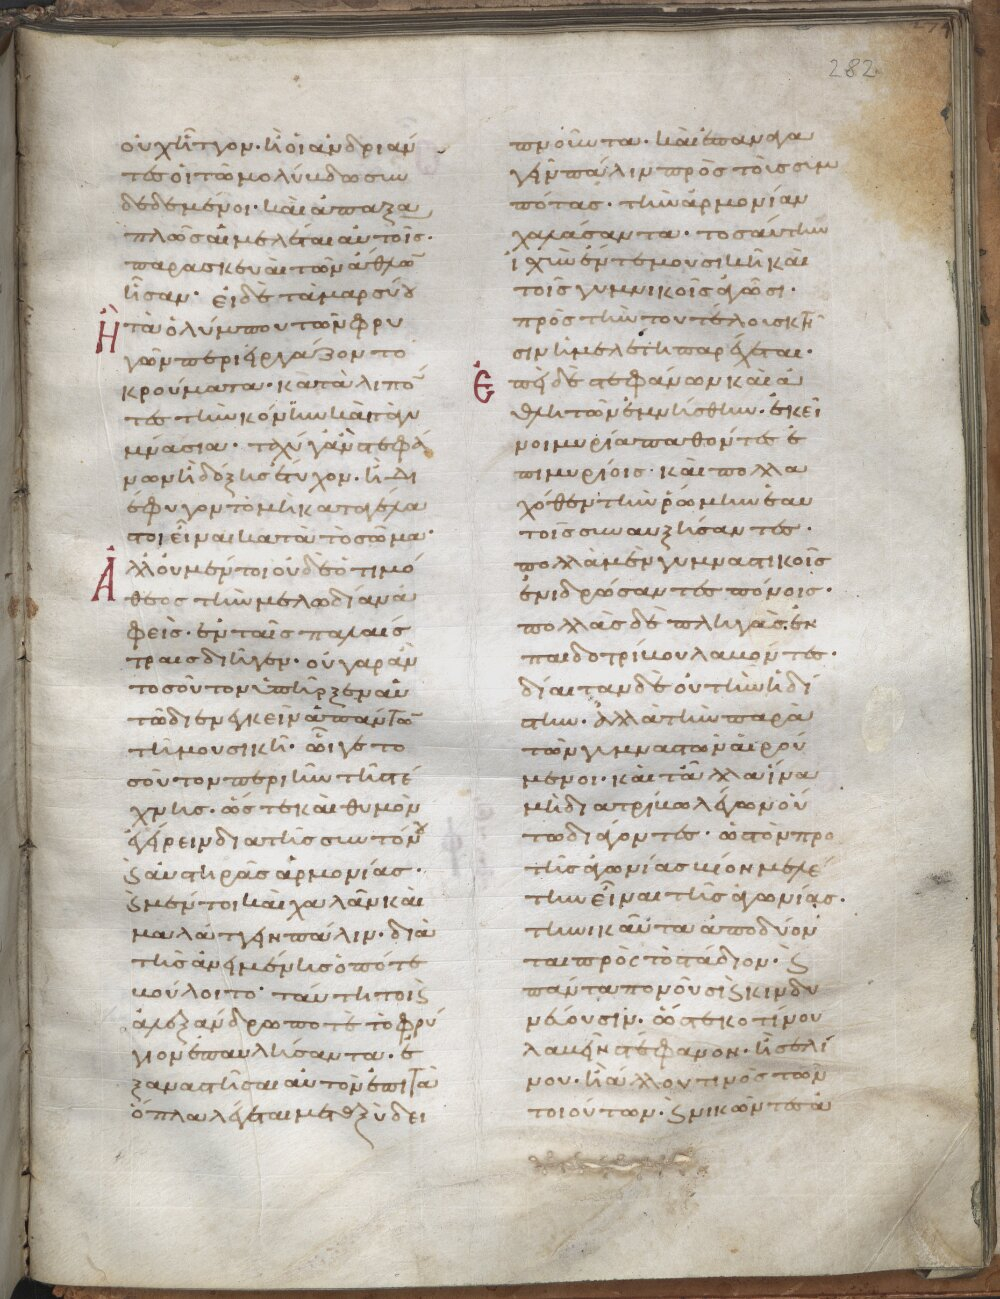 282
οὐχ ἧττον· ἢ οἱ ἀνδριάν
τες οἱ τῷ μολύβδῳ συν
δεδεμένοι· καὶ ἁπαξα
πλῶς αἱ μελέται αὐτοῖς·
παρασκευαὶ τῶν ἄθλων
ἦσαν· εἰ δὲ τὰ μαρσύου
ἢ τὰ ὀλύμπου τῶν φρυ
γῶν περιειργάζοντο
κρούματα· καταλιπόν
τες τὴν κόνην καὶ τὰ γυ
μνάσια· ταχύ γ' ἂν στεφά
νων ἢ δόξης ἔτυχον· ἢ δι
έφυγον τὸ μὴ καταγέλα
στοι εἶναι κατὰ τὸ σῶμα·
Ἀλλ' οὐ μέντοι οὐδὲ ὁ τιμό
θεος τὴν μελῳδίαν ἀ
φεὶς· ἐν ταῖς παλαίσ
τραις διῆγεν· οὐ γὰρ ἂν
τοσοῦτον ὑπῆρξεν αὐ
τῷ διενεγκεῖν ἁπάντων
τῇ μουσικῇ· ᾧ γε το
σοῦτον περιῆν τῆς τέ
χνης· ὥστε καὶ θυμὸν
ἐγείρειν διὰ τῆς συντόνου
καὶ αὐστηρᾶς ἁρμονίας·
καὶ μέντοι καὶ χαλᾶν καὶ
μαλάττειν πάλιν· διὰ
τῆς ἀνειμένης ὁπότε
βούλοιτο· ταύτῃ τοι καὶ
ἀλεξάνδρῳ ποτὲ τὸ φρύ
γιον ἐπαυλήσαντα· ἐ
ξαναστῆσαι αὐτὸν ἐπὶ τὰ
ὅπλα λέγεται μεταξὺ δει
πνοῦντα· καὶ ἐπαναγα
γεῖν πάλιν πρὸς τοὺς συμ
πότας· τὴν ἁρμονίαν
χαλάσαντα· τοσαύτην
ἰσχὺν ἔν τε μουσικῇ καὶ
τοῖς γυμνικοῖς ἀγῶσι·
πρὸς τὴν τοῦ τέλους κτῆ
σιν ἡ μελέτη παρέχεται·
Ἐπεὶ δὲ στεφάνων καὶ ἀ
θλητῶν ἐμνήσθην· ἐκεῖ
νοι μυρία παθόντες ἐ
πὶ μυρίοις· καὶ πολλα
χόθεν τὴν ῥώμην ἑαυ
τοῖς συναυξήσαντες·
πολλὰ μὲν γυμναστικοῖς
ἐνιδρώσαντες πόνοις·
πολλὰς δὲ πληγὰς ἐν
παιδοτρίβου λαβόντες·
δίαιταν δὲ οὐ τὴν ἡδί
στην· ἀλλὰ τὴν παρὰ
τῶν γυμναστῶν αἱρού
μενοι· καὶ τἆλλα ἵνα
μὴ διατρίβω λέγων οὕ
τω διάγοντες· ὡς τὸν πρὸ
τῆς ἀγωνίας βίον μελέ
την εἶναι τῆς ἀγωνίας·
τηνικαῦτα ἀποδύον
ται πρὸς τὸ στάδιον· καὶ
πάντα πονοῦσι καὶ κινδυ
νεύουσιν· ὥστε κοτίνου
λαβεῖν στέφανον· ἢ σελί
νου· ἢ ἄλλου τινὸς τῶν
τοιούτων· καὶ νικῶντες ἀ